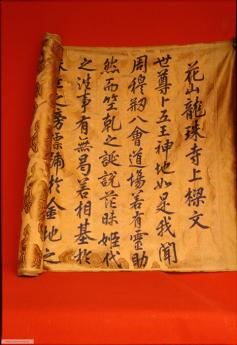 花山龍珠寺上樑文
世尊卜五王神地如是我聞
周穆剏八會道場若有靈助
然而竺乾之誕說茫昧姬代
之事有無善相基於
王之旁於金地之